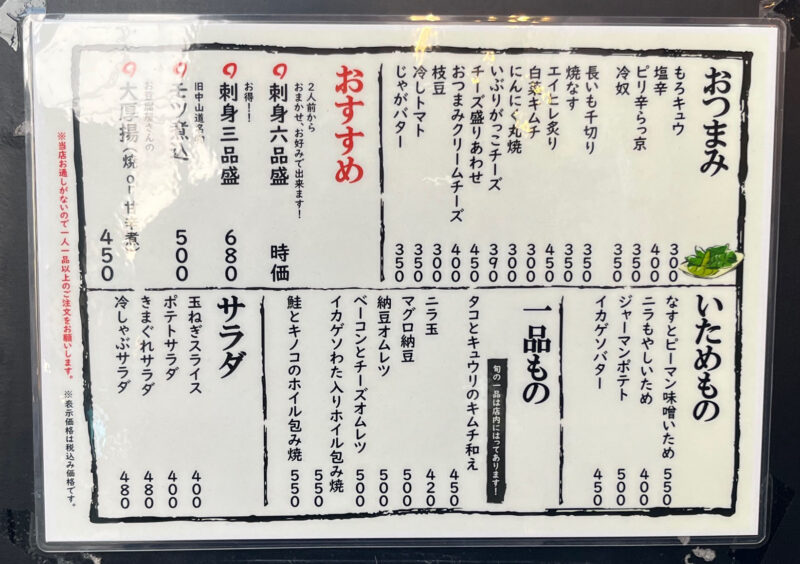 おつまみ
もろキュウ 300
塩辛 400
ピリ辛らっ京 350
冷奴 350
長いも千切り 350
焼なす 350
エイヒレ炙り 450
白菜キムチ 300
にんにく丸焼 300
いぶりがっこチーズ 390
チーズ盛りあわせ 450
おつまみクリームチーズ 400
枝豆 300
冷しトマト 300
じゃがバター 350
おすすめ
2人前から
おまかせ、お好みで出来ます！
刺身六品盛 時価
お得！！
刺身三品盛 680
旧中山道
モツ煮込 500
お豆腐屋さんの
大厚揚（焼 or 甘辛煮） 450
いためもの
なすとピーマン味噌いため 550
ニラもやしいため 400
ジャーマンポテト 500
イカゲソバター 450
一品もの
旬の一品は店内にはってあります！
タコとキュウリのキムチ和え 450
ニラ玉 420
マグロ納豆 500
納豆オムレツ 500
ベーコンとチーズオムレツ 500
イカゲソわた入りホイル包み焼 550
鮭とキノコのホイル包み焼 550
サラダ
玉ねぎスライス 400
ポテトサラダ 400
きまぐれサラダ 480
冷しゃぶサラダ 480
※当店お通しがないので一人一品以上のご注文をお願いします。
※表示価格は税込み価格です。